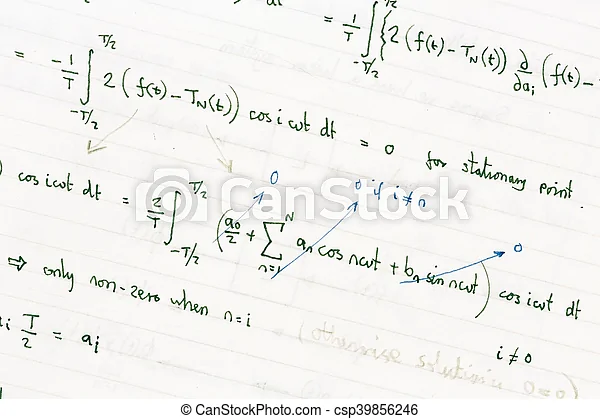 = 1/T ∫ T/2 { 2 (f(t) - T_N(t)) ∂/∂a_i (f(t) -
= -1/T ∫ -T/2 T/2 2 (f(t) - T_N(t)) cos iωt dt = 0 for stationary point.
) cos iωt dt = 2/T ∫ -T/2 T/2 (a_0/2 + Σ n=1 N a_n cos nωt + b_n sin nωt) cos iωt dt
0
0 if i ≠ n
0
⇒ only non-zero when n=i
i ≠ 0
T/2 = a_i
= (otherwise solution is 0=0)
© CanStockPhoto
© CanStockPhoto.com - csp39856246